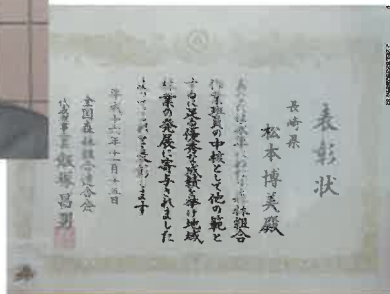 表彰状
長崎県
松本博美殿
森林組合
作業班員の中核として他の範と
するに足る優秀な成績を挙げ地域
林業の発展に寄与されました
よってこれを表彰します
平成十六年十一月十五日
全国森林組合連合会
代表理事会長 飯塚昌男